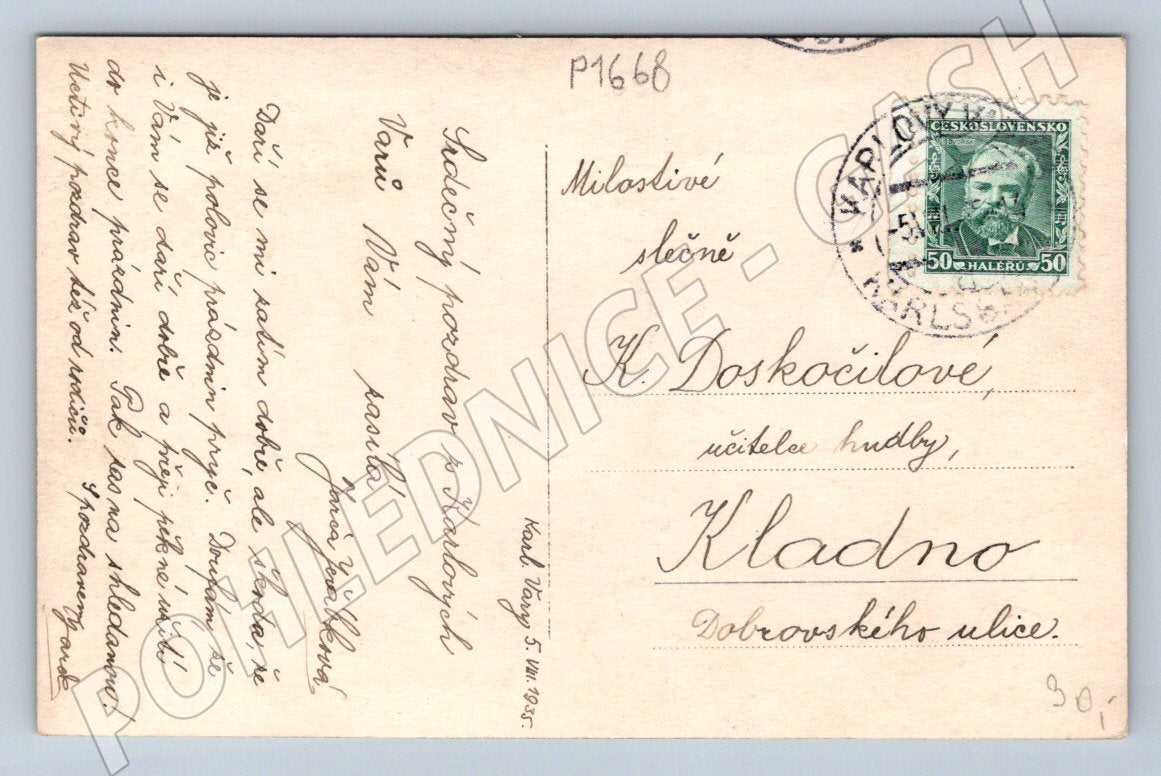 P1668
Karl. Vary 5. VIII. 1935.
Srdečný pozdrav z Karlových
Varů Vám zasílá
Jarča
Daří se mi zatím dobře, ale škoda, že
je již polovic prázdnin pryč. Doufám, že
i Vám se daří dobře a přeji pěkné užití
do konce prázdnin. Pak zas na shledanou!
Uctivý pozdrav též od rodičů. S pozdravem
Milostivé
slečně
K. Doskočilové,
učitelce hudby,
Kladno
Dobrovského ulice.
90,-
ČESKOSLOVENSKO
DVOŘÁK
50 HALÉŘŮ 50
KARLOVY VARY
KARLSBAD
POHLEDNICE - CASH